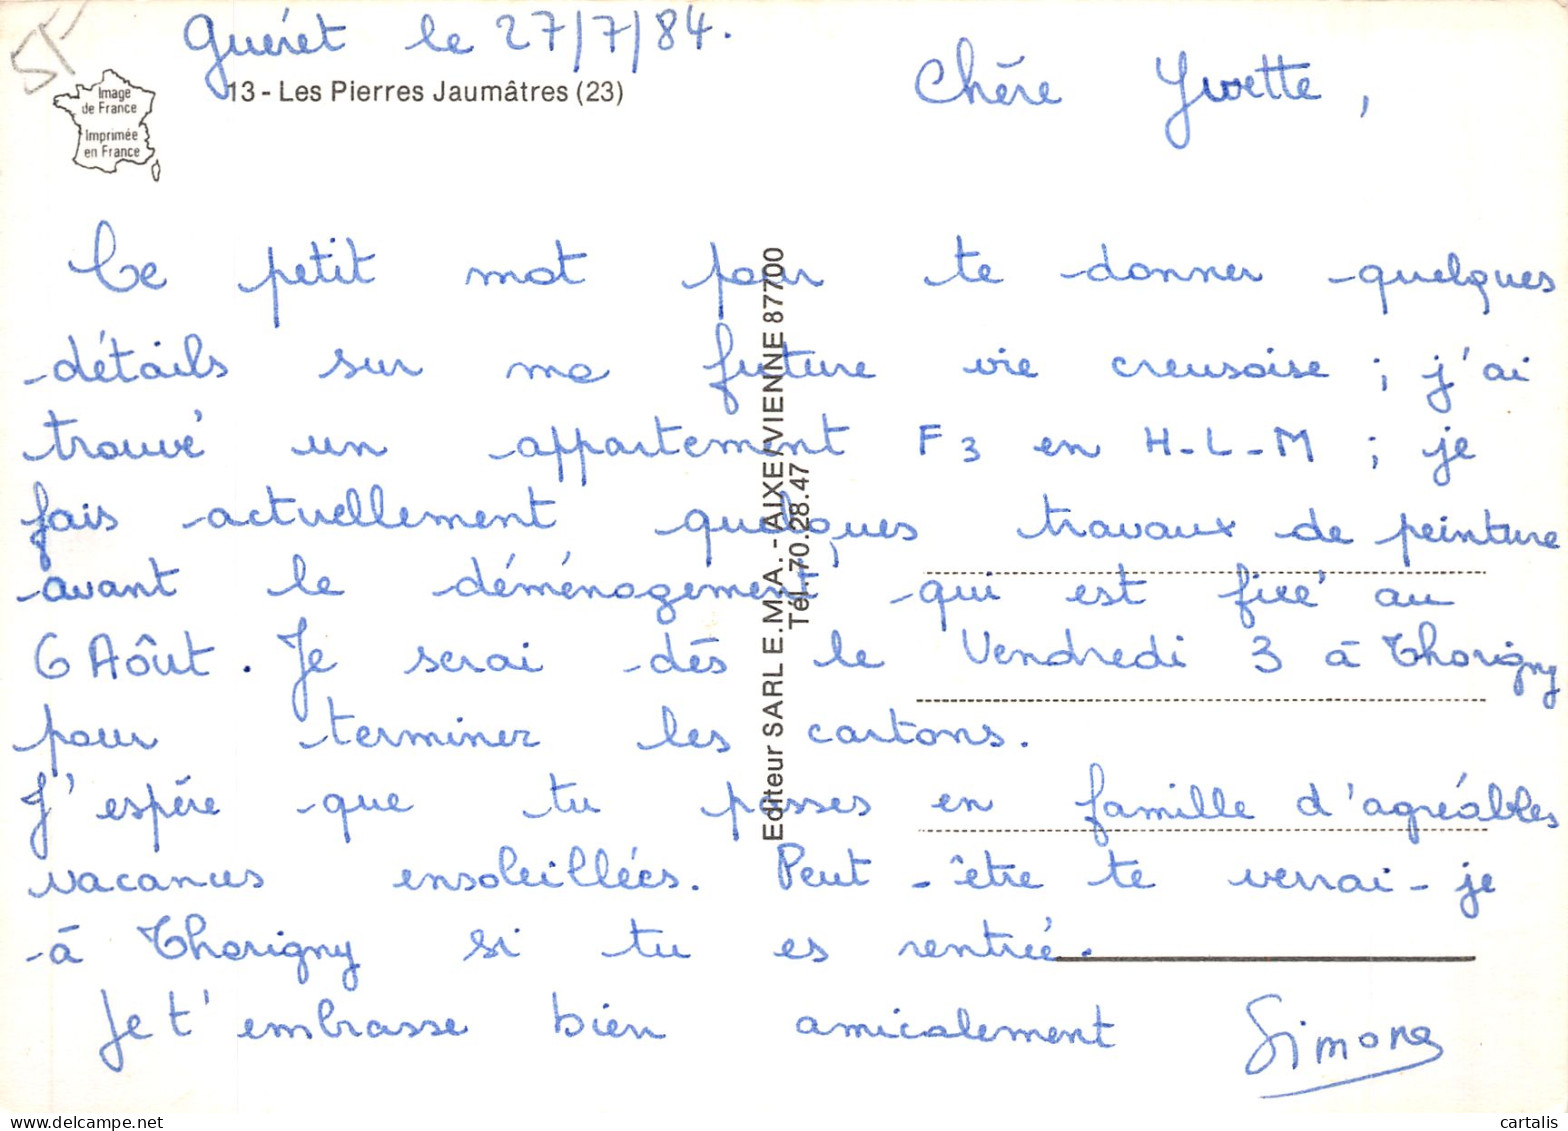 ST
Guéret le 27/7/84.
Image
de France
Imprimée
en France
13 - Les Pierres Jaumâtres (23)
Chère Yvette,
Ce petit mot pour te donner quelques
détails sur ma future vie creusoise ; j'ai
trouvé un appartement F3 en H-L-M ; je
fais actuellement quelques travaux de peinture
avant le déménagement, qui est fixé au
6 Août. Je serai dès le Vendredi 3 à Thorigny
pour terminer les cartons.
J'espère que tu passes en famille d'agréables
vacances ensoleillées. Peut-être te verrai-je
à Thorigny si tu es rentrée.
Je t'embrasse bien amicalement Simone
Editeur SARL E.M.A. - AIXE/VIENNE 87700
Tél. 70.28.47
www.delcampe.net
cartalis